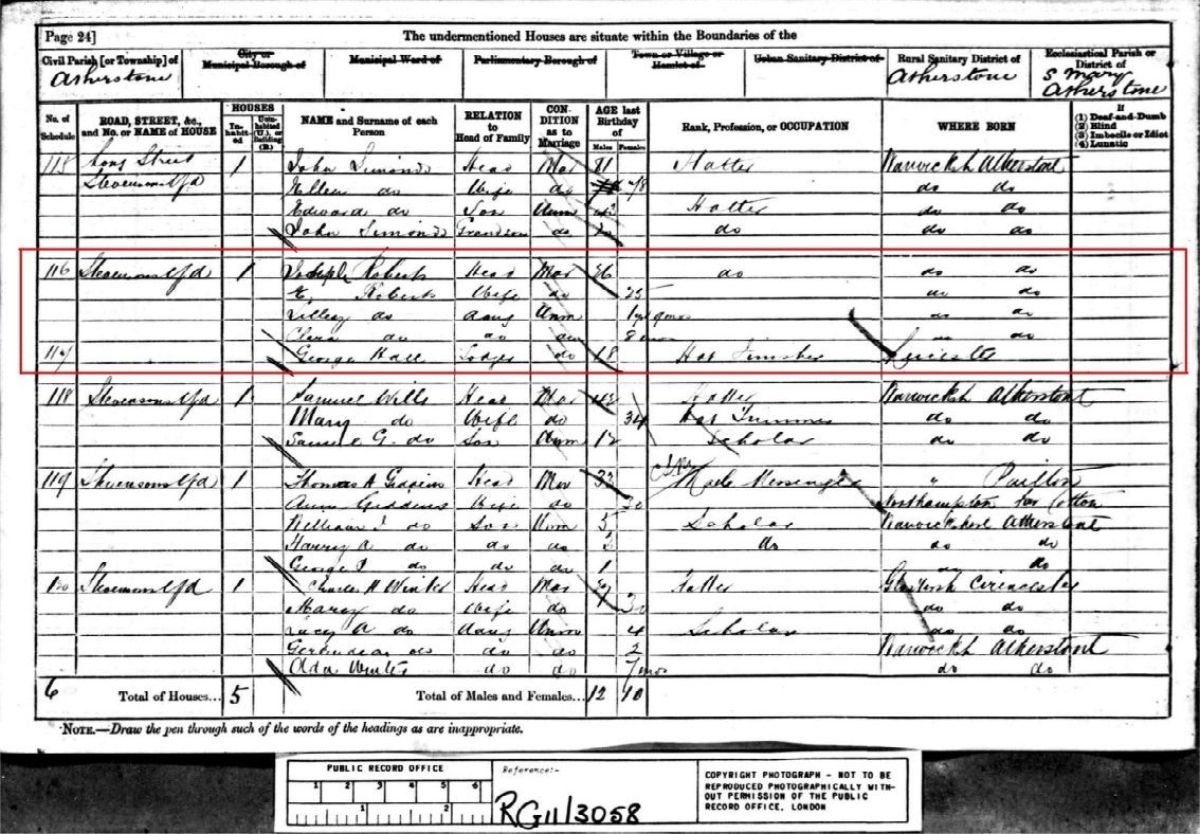 Page 24]
The undermentioned Houses are situate within the Boundaries of the
Civil Parish [or Township] of
Atherstone
City or
Municipal Borough of
Municipal Ward of
Parliamentary Borough of
Town or Village or
Hamlet of
Urban Sanitary District of
Rural Sanitary District of
Atherstone
Ecclesiastical Parish or
District of
S Mary
Atherstone
No. of
Schedule
ROAD, STREET, &c.,
and No. or NAME of HOUSE
HOUSES
In-
habit-
ed
Unin-
habited
(U.), or
Building
(B.)
NAME and Surname of each
Person
RELATION
to
Head of Family
CON-
DITION
as to
Marriage
AGE last
Birthday
of
Males
Females
Rank, Profession, or OCCUPATION
WHERE BORN
If
(1) Deaf-and-Dumb
(2) Blind
(3) Imbecile or Idiot
(4) Lunatic
115 Long Street 1 John Simonds Head Mar 81 Hatter Warwicksh Atherstone
Stevensons Yd Ellen do Wife do 78 do do
Edward do Son Unm Hatter do do
John Simonds Grandson do do do do
116 Stevensons Yd 1 Joseph Roberts Head Mar 26 do do do
E. Roberts Wife do 25 do do
Lilley do Daug Unm 1 do do
Clara do do do 8 mos do do
117 George Hall Lodger do 18 Hat Finisher
118 Stevensons Yd 1 Samuel Wills Head Mar Hatter Warwicksh Atherstone
Mary do Wife do 34 Hat Trimmer do do
Samuel G. do Son Unm 12 Scholar do do
119 Stevensons Yd 1 Thomas A Giddins Head Mar 33 Messenger "
Ann Giddins Wife do 30 Northampton
William J. do Son Unm 5 Scholar Atherstone
Harry A do do do 2 do do do
George P do do do 1 do
Stevensons Yd 1 Charles H Winter Head Mar Hatter Cirencester
Mary do Wife do do do
Lucy A do Daug Unm 4 Scholar do do
do do do 2 Warwicksh Atherstone
Ada Winter do do 7 mos do do
6 Total of Houses... 5 Total of Males and Females... 12 10
NOTE.—Draw the pen through such of the words of the headings as are inappropriate.
PUBLIC RECORD OFFICE
1 2 3 4 5 6
1 2
Reference:-
RG11/3058
COPYRIGHT PHOTOGRAPH - NOT TO BE
REPRODUCED PHOTOGRAPHICALLY WITH-
OUT PERMISSION OF THE PUBLIC
RECORD OFFICE, LONDON